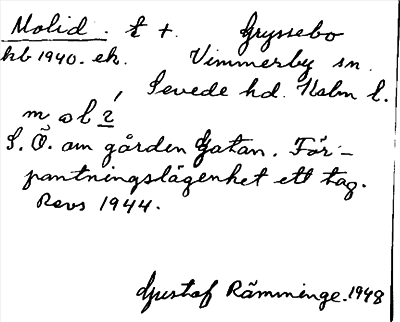 Molid. t +. Gryssebo
kb 1940. ek. Vimmerby sn.
Sevede hd. Kalm l.
m ɔl 2̲
S. Ö. om gården Gatan. För-
pantningslägenhet ett tag.
Revs 1944.
Gustaf Rämminge. 1948